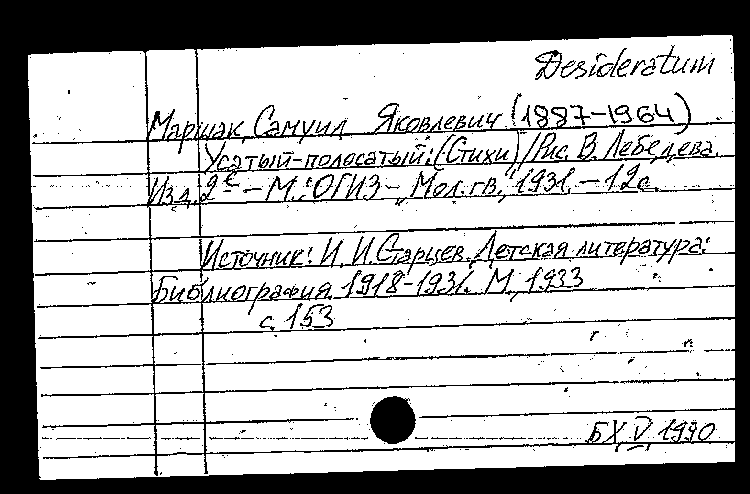 Desideratum
Маршак, Самуил Яковлевич (1887-1964)
Усатый-полосатый: (Стихи) / Рис. В. Лебедева.
Изд. 2е - М.: ОГИЗ - "Мол. гв.", 1931. - 12 с.
Источник: И. И. Старцев. Детская литература:
Библиография. 1918-1931. М., 1933
с. 153
БХ, V, 1990